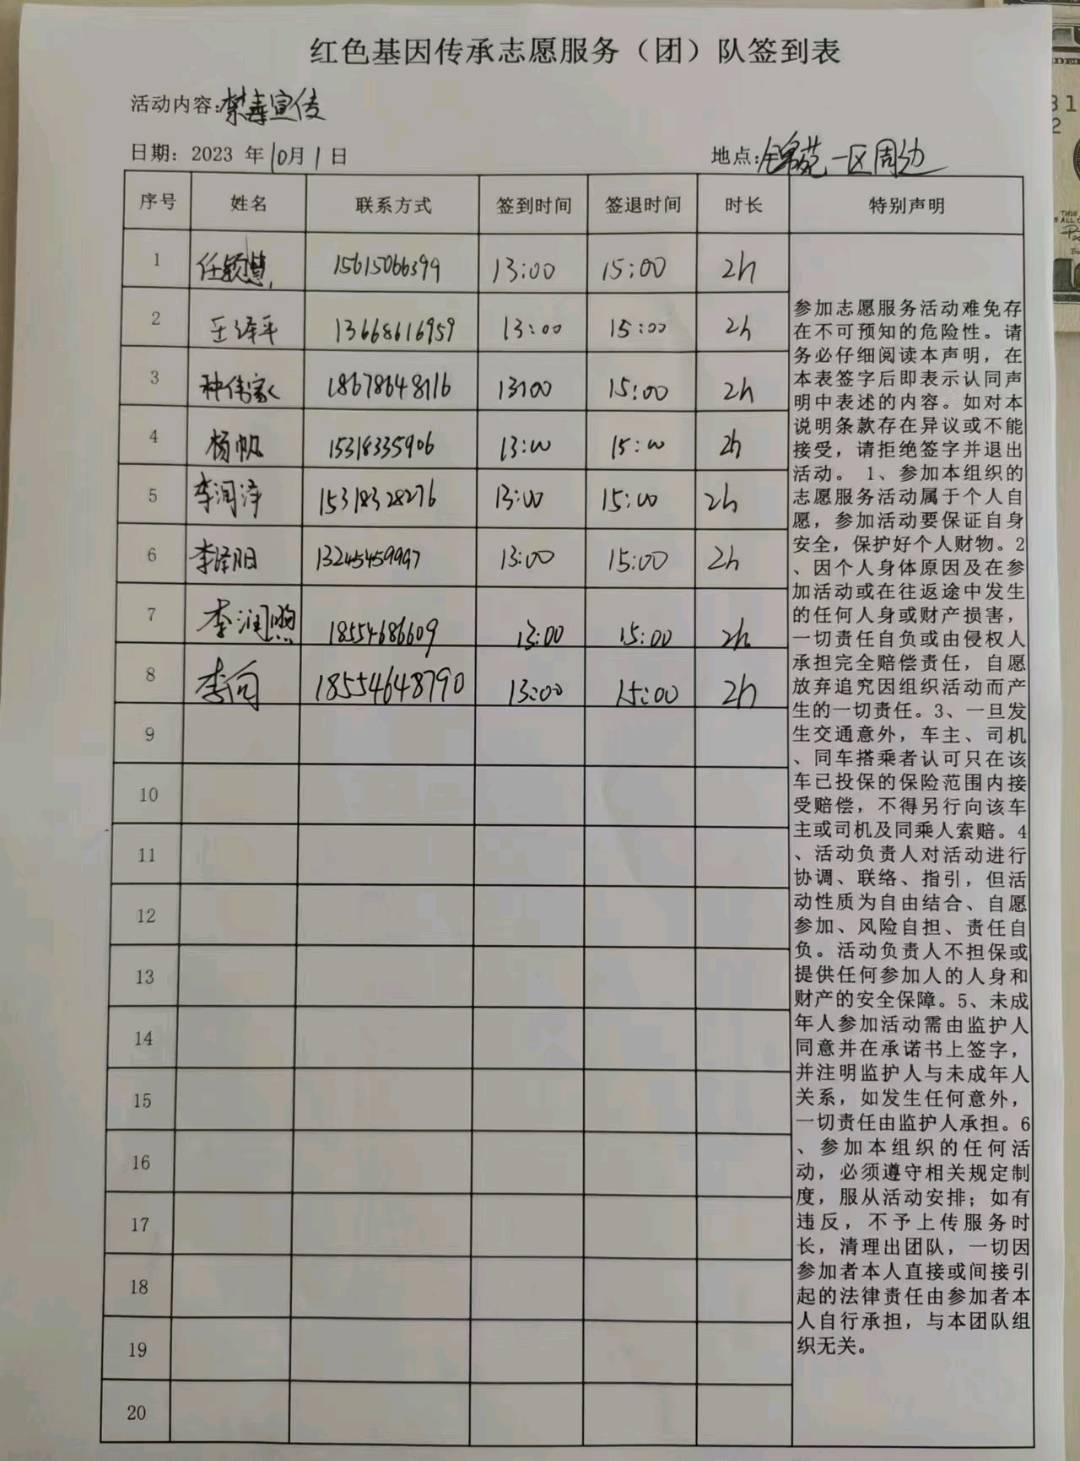 红色基因传承志愿服务（团）队签到表
活动内容：禁毒宣传
日期：2023 年10月1日 地点：锦苑一区周边
序号 姓名 联系方式 签到时间 签退时间 时长 特别声明
1 任颖慧 15615066399 13:00 15:00 2h
2 王泽平 13668616959 13:00 15:00 2h
3 种伟家 18678648116 13:00 15:00 2h
4 杨帆 15318335906 13:00 15:00 2h
5 李润泽 15318328276 13:00 15:00 2h
6 李泽阳 13245459997 13:00 15:00 2h
7 李润煦 18554686609 13:00 15:00 2h
8 李向 18554648790 13:00 15:00 2h
9
10
11
12
13
14
15
16
17
18
19
20
参加志愿服务活动难免存
在不可预知的危险性。请
务必仔细阅读本声明，在
本表签字后即表示认同声
明中表述的内容。如对本
说明条款存在异议或不能
接受，请拒绝签字并退出
活动。 1、参加本组织的
志愿服务活动属于个人自
愿，参加活动要保证自身
安全，保护好个人财物。2
、因个人身体原因及在参
加活动或在往返途中发生
的任何人身或财产损害，
一切责任自负或由侵权人
承担完全赔偿责任，自愿
放弃追究因组织活动而产
生的一切责任。3、一旦发
生交通意外，车主、司机
、同车搭乘者认可只在该
车已投保的保险范围内接
受赔偿，不得另行向该车
主或司机及同乘人索赔。4
、活动负责人对活动进行
协调、联络、指引，但活
动性质为自由结合、自愿
参加、风险自担、责任自
负。活动负责人不担保或
提供任何参加人的人身和
财产的安全保障。5、未成
年人参加活动需由监护人
同意并在承诺书上签字，
并注明监护人与未成年人
关系，如发生任何意外，
一切责任由监护人承担。6
、参加本组织的任何活
动，必须遵守相关规定制
度，服从活动安排；如有
违反，不予上传服务时
长，清理出团队，一切因
参加者本人直接或间接引
起的法律责任由参加者本
人自行承担，与本团队组
织无关。